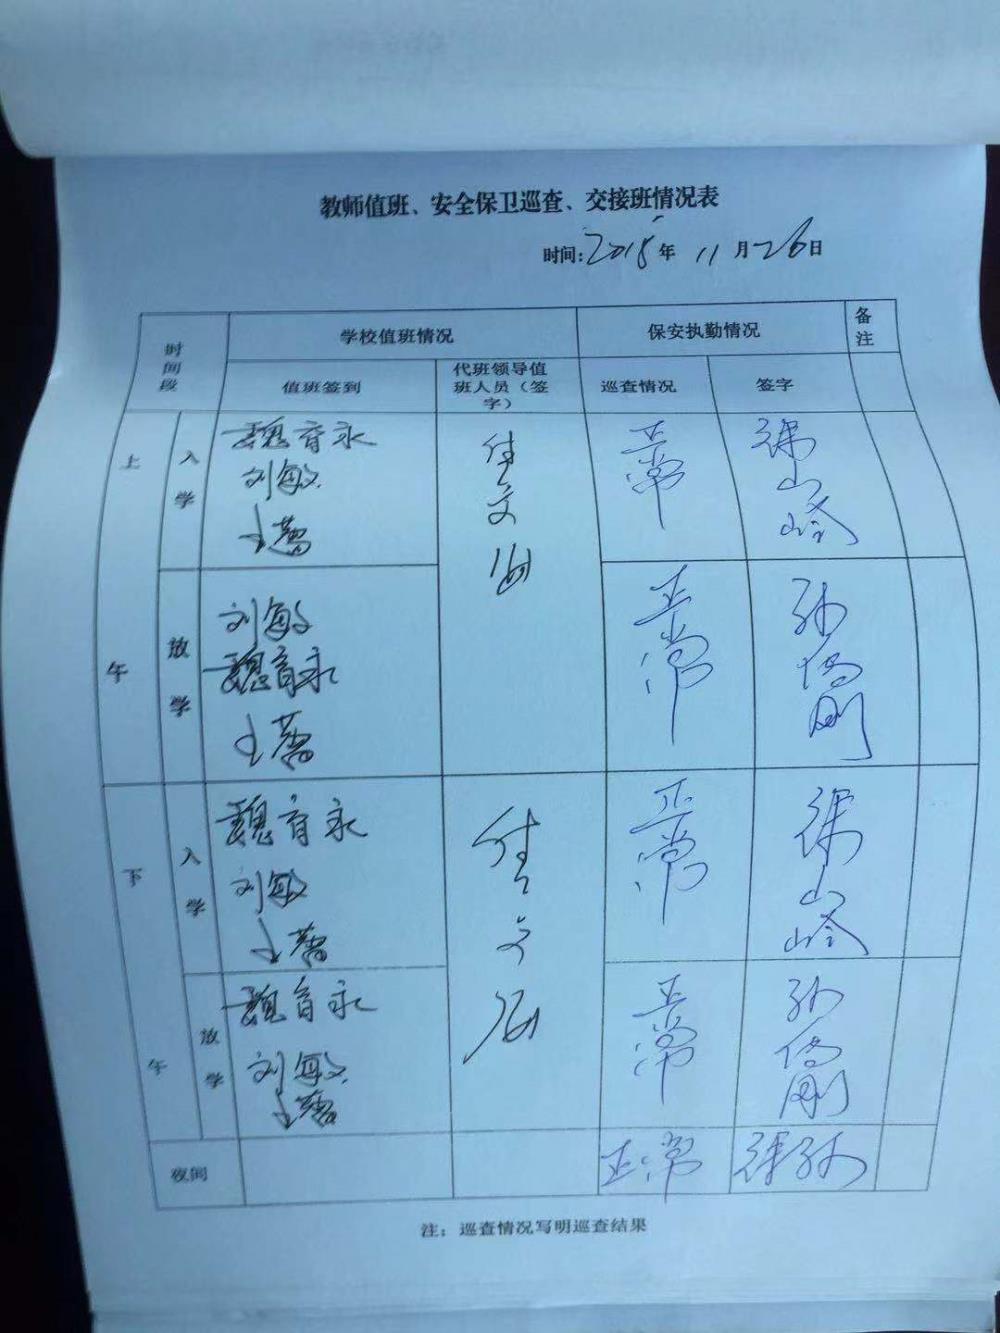 教师值班、安全保卫巡查、交接班情况表
时间:2015年 11月26日
时间段
学校值班情况
保安执勤情况
备注
值班签到
代班领导值班人员（签字）
巡查情况
签字
上午
入学
魏育永
刘敏
王蕾
正常
山峰
放学
刘敏
魏育永
王蕾
正常
孙
刚
下午
入学
魏育永
刘敏
王蕾
文海
正常
山
放学
魏育永
刘敏
王蕾
正常
孙
刚
夜间
正常
孙
注：巡查情况写明巡查结果